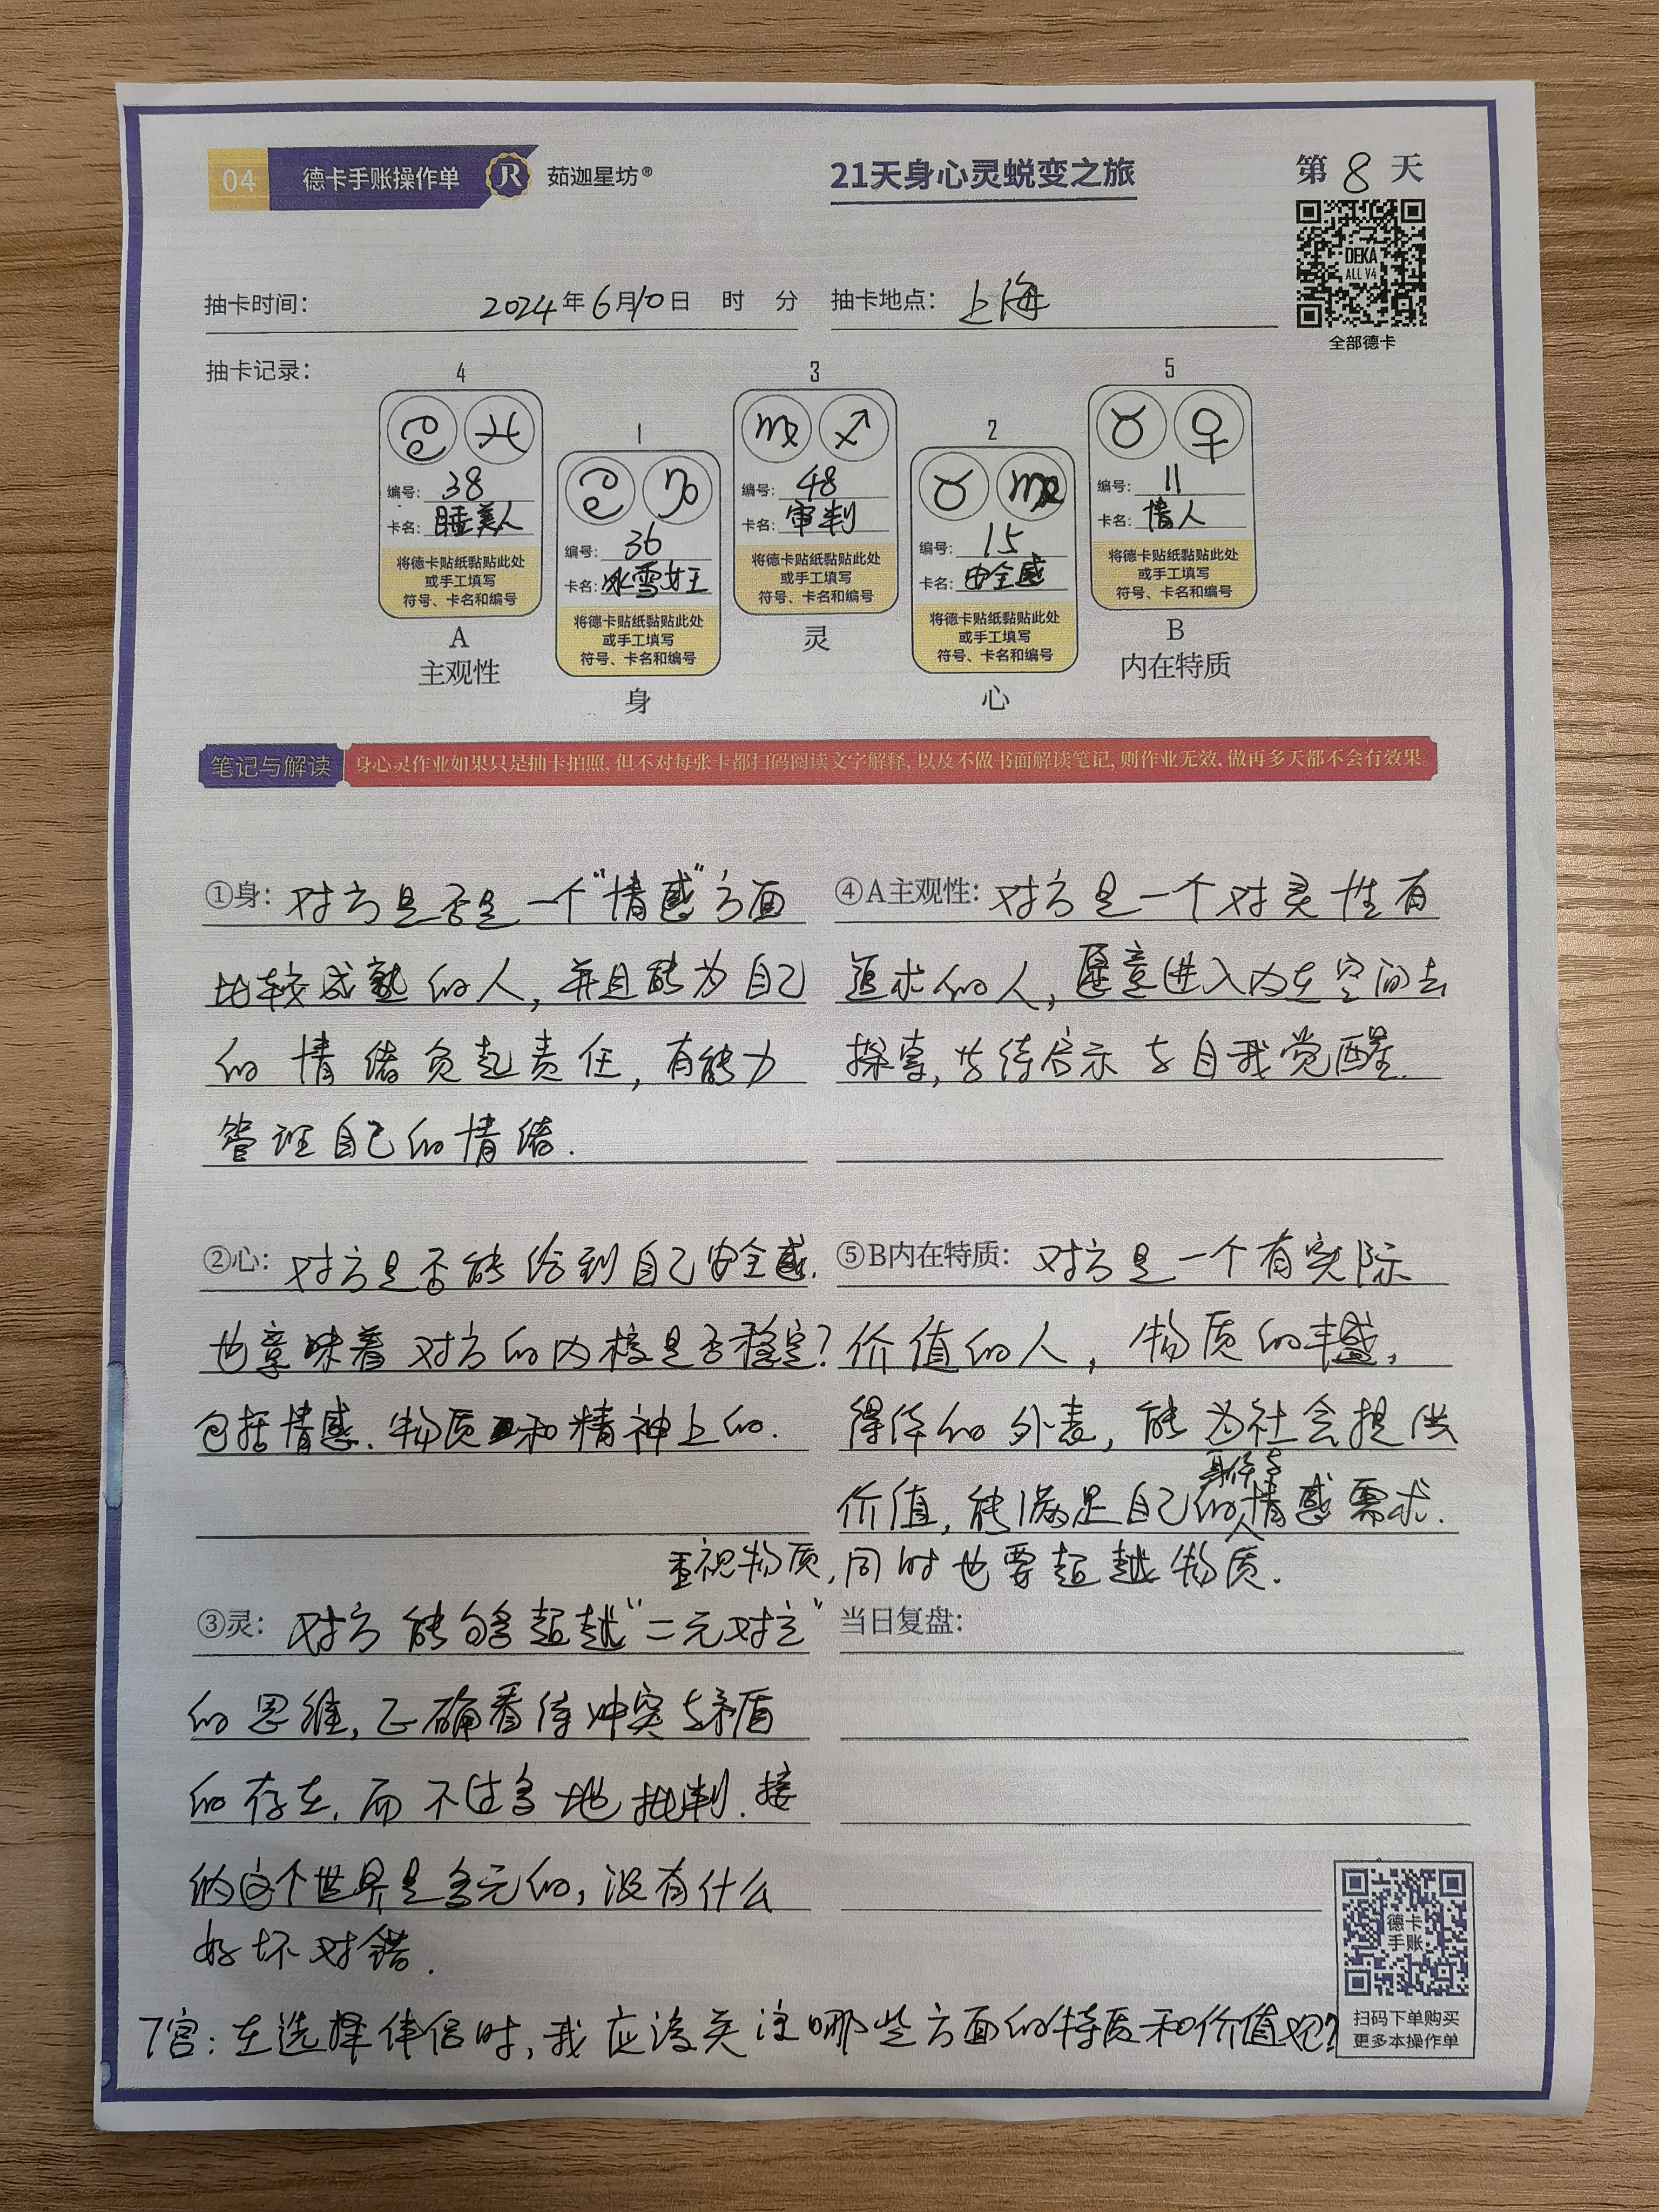 04 德卡手账操作单 JR 茹迦星坊®
21天身心灵蜕变之旅
第8天
DEKA
ALL V4
全部德卡
抽卡时间： 2024年6月10日 时 分 抽卡地点： 上海
抽卡记录：
4
♋ ♓
编号：38
卡名：睡美人
将德卡贴纸黏贴此处
或手工填写
符号、卡名和编号
A
主观性
1
♋ ♑
编号：36
卡名：冰雪女王
将德卡贴纸黏贴此处
或手工填写
符号、卡名和编号
身
3
♍ ♐
编号：48
卡名：审判
将德卡贴纸黏贴此处
或手工填写
符号、卡名和编号
灵
2
♉ ♍
编号：15
卡名：安全感
将德卡贴纸黏贴此处
或手工填写
符号、卡名和编号
心
5
♉ ♀
编号：11
卡名：情人
将德卡贴纸黏贴此处
或手工填写
符号、卡名和编号
B
内在特质
笔记与解读 身心灵作业如果只是抽卡拍照，但不对每张卡都扫码阅读文字解释，以及不做书面解读笔记，则作业无效，做再多天都不会有效果。
①身：对方是否是一个“情感”方面
比较成熟的人，并且能为自己
的情绪负起责任，有能力
管理自己的情绪.
②心：对方是否能给到自己安全感.
也意味着对方的内核是否稳定？
包括情感、物质和精神上的.
③灵：对方能够超越“二元对立”
的思维，正确看待冲突与矛盾
的存在，而不过多地批判.接
纳这个世界是多元的，没有什么
好坏对错.
④A主观性：对方是一个对灵性有
追求的人，愿意进入内在空间去
探索，等待启示与自我觉醒.
⑤B内在特质：对方是一个有实际
价值的人，物质的丰盛，
得体的外表，能为社会提供
价值，能满足自己的身体与情感需求.
重视物质，同时也要超越物质.
当日复盘：
7宫：在选择伴侣时，我应该关注哪些方面的特质和价值观？
德卡
手账
扫码下单购买
更多本操作单